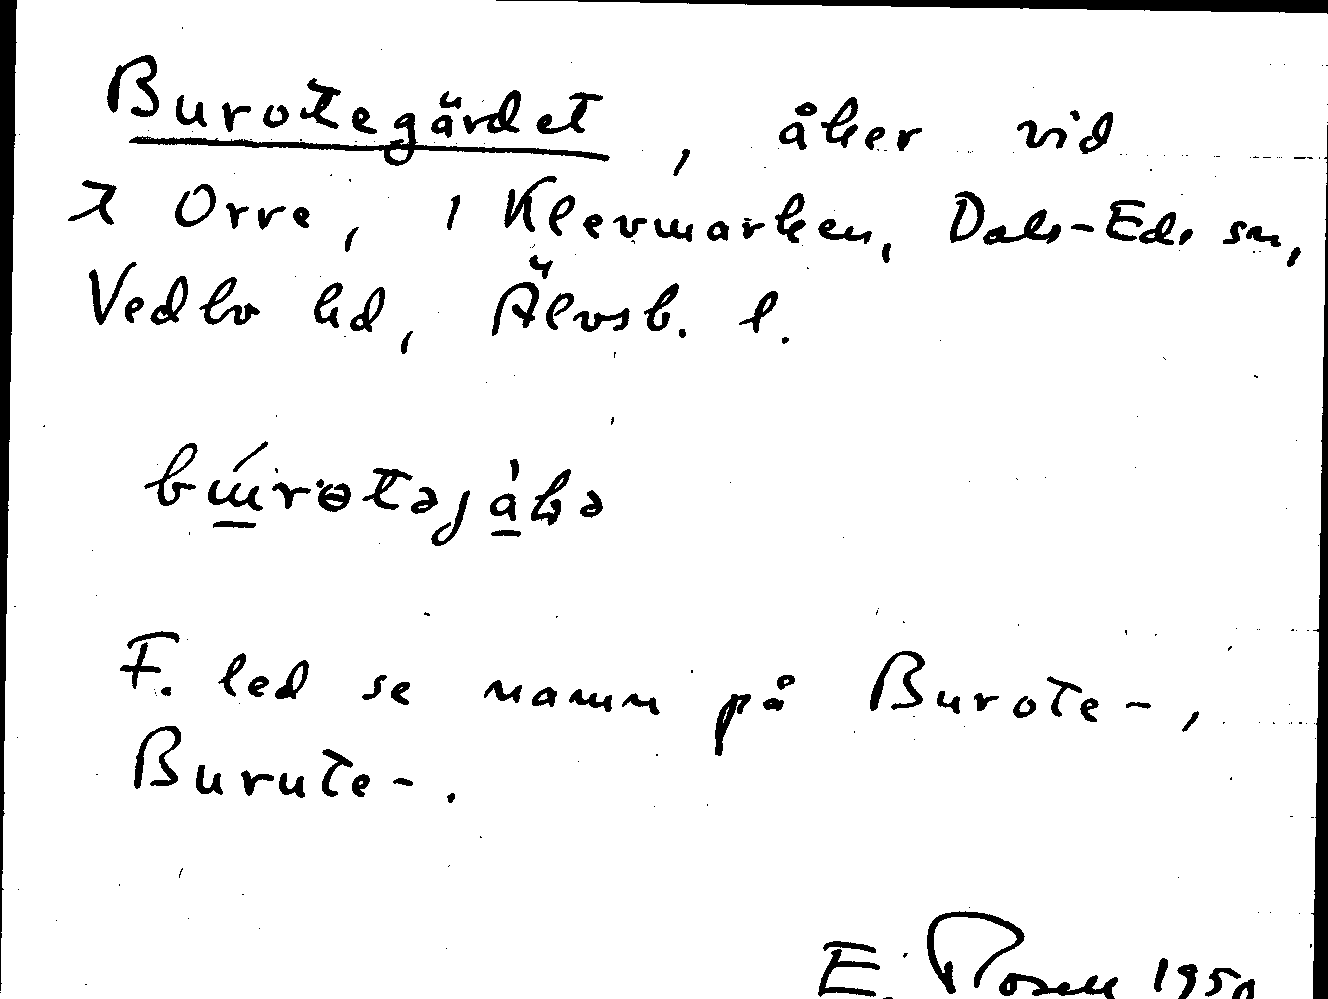 Burotegärdet, åker vid
t Orre, i Klevmarken, Dals-Eds sn,
Vedbo hd, Älvsb. l.
F. led se namn på Burote-,
Burute-.
E. Rosell